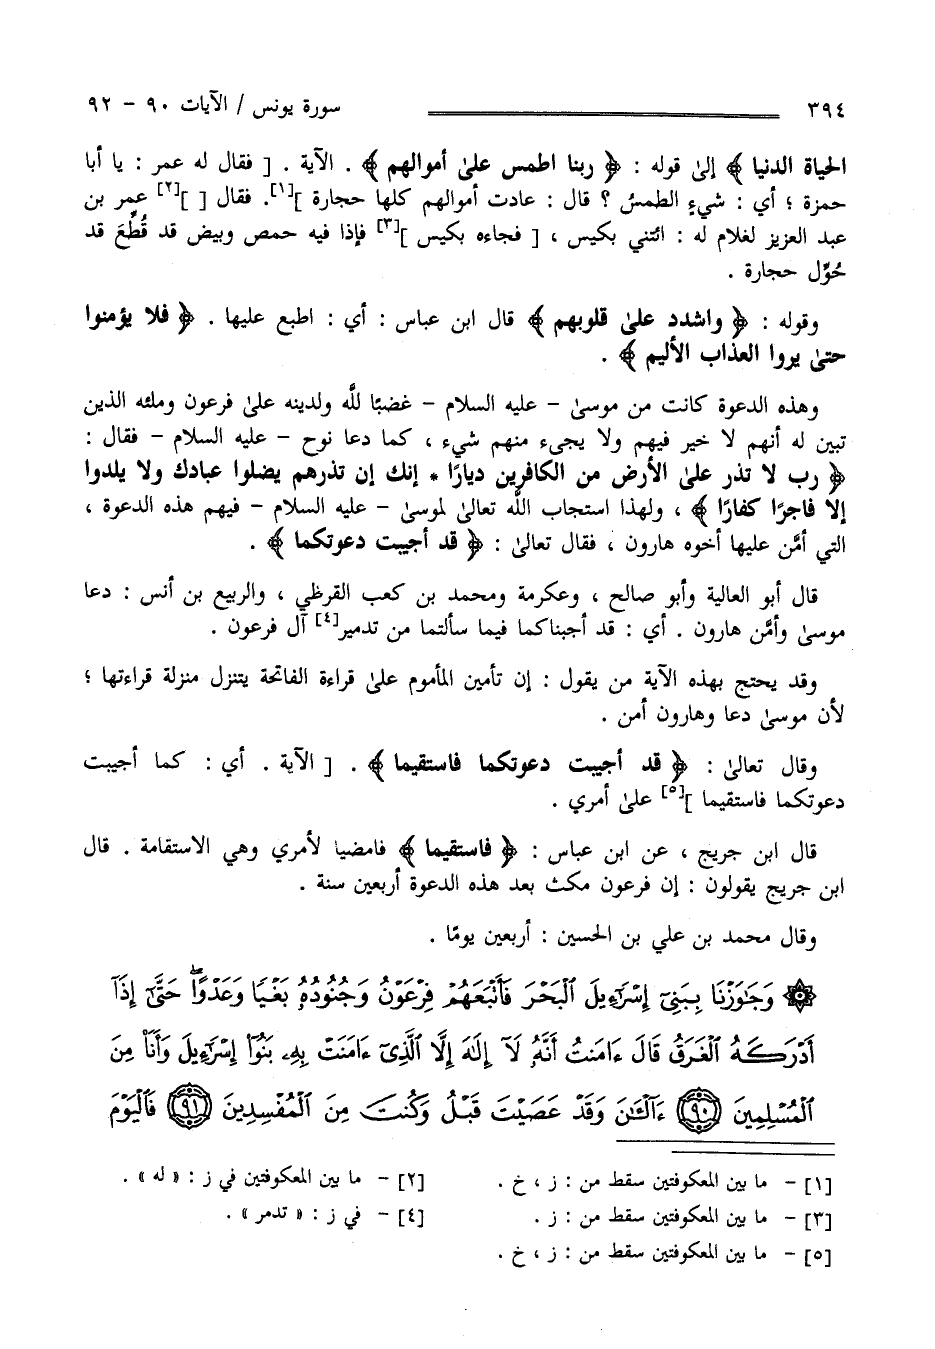 ٣٩٤ سورة يونس / الآيات ٩٠ - ٩٢
الحياة الدنيا ﴾ إلى قوله : ﴿ ربنا اطمس على أموالهم ﴾ . الآية . [ فقال له عمر : يا أبا
حمزة ؛ أي : شيءٍ الطمسُ ؟ قال : عادت أموالهم كلها حجارة ][١]. فقال [ ][٢] عمر بن
عبد العزيز لغلام له : ائتني بكيس ، [ فجاءه بكيس ][٣] فإذا فيه حمص وبيض قد قُطِّعَ قد
حُوِّل حجارة .
وقوله : ﴿ واشدد على قلوبهم ﴾ قال ابن عباس : أي : اطبع عليها . ﴿ فلا يؤمنوا
حتى يروا العذاب الأليم ﴾ .
وهذه الدعوة كانت من موسى - عليه السلام - غضبًا للَّه ولدينه على فرعون وملئه الذين
تبين له أنهم لا خير فيهم ولا يجيء منهم شيء ، كما دعا نوح - عليه السلام - فقال :
﴿ رب لا تذر على الأرض من الكافرين ديارًا * إنك إن تذرهم يضلوا عبادك ولا يلدوا
إلا فاجرًا كفارًا ﴾ ، ولهذا استجاب اللَّه تعالى لموسى - عليه السلام - فيهم هذه الدعوة ،
التي أمَّن عليها أخوه هارون ، فقال تعالى : ﴿ قد أجيبت دعوتكما ﴾ .
قال أبو العالية وأبو صالح ، وعكرمة ومحمد بن كعب القرظي ، والربيع بن أنس : دعا
موسى وأمَّن هارون . أي : قد أجبناكما فيما سألتما من تدمير[٤] آل فرعون .
وقد يحتج بهذه الآية من يقول : إن تأمين المأموم على قراءة الفاتحة يتنزل منزلة قراءتها ؛
لأن موسى دعا وهارون أمن .
وقال تعالى : ﴿ قد أجيبت دعوتكما فاستقيما ﴾ . [ الآية . أي : كما أجيبت
دعوتكما فاستقيما ][٥] على أمري .
قال ابن جريج ، عن ابن عباس : ﴿ فاستقيما ﴾ فامضيا لأمري وهي الاستقامة . قال
ابن جريج يقولون : إن فرعون مكث بعد هذه الدعوة أربعين سنة .
وقال محمد بن علي بن الحسين : أربعين يومًا .
۞ وَجَٰوَزْنَا بِبَنِىٓ إِسْرَٰٓءِيلَ ٱلْبَحْرَ فَأَتْبَعَهُمْ فِرْعَوْنُ وَجُنُودُهُۥ بَغْيًا وَعَدْوًا ۖ حَتَّىٰٓ إِذَآ
أَدْرَكَهُ ٱلْغَرَقُ قَالَ ءَامَنتُ أَنَّهُۥ لَآ إِلَٰهَ إِلَّا ٱلَّذِىٓ ءَامَنَتْ بِهِۦ بَنُوٓا۟ إِسْرَٰٓءِيلَ وَأَنَا۠ مِنَ
ٱلْمُسْلِمِينَ ٩٠ ءَآلْـَٰٔنَ وَقَدْ عَصَيْتَ قَبْلُ وَكُنتَ مِنَ ٱلْمُفْسِدِينَ ٩١ فَٱلْيَوْمَ
[١] - ما بين المعكوفتين سقط من : ز ، خ . [٢] - ما بين المعكوفتين في ز : « له » .
[٣] - ما بين المعكوفتين سقط من : ز . [٤] - في ز : « تدمر » .
[٥] - ما بين المعكوفتين سقط من : ز ، خ .